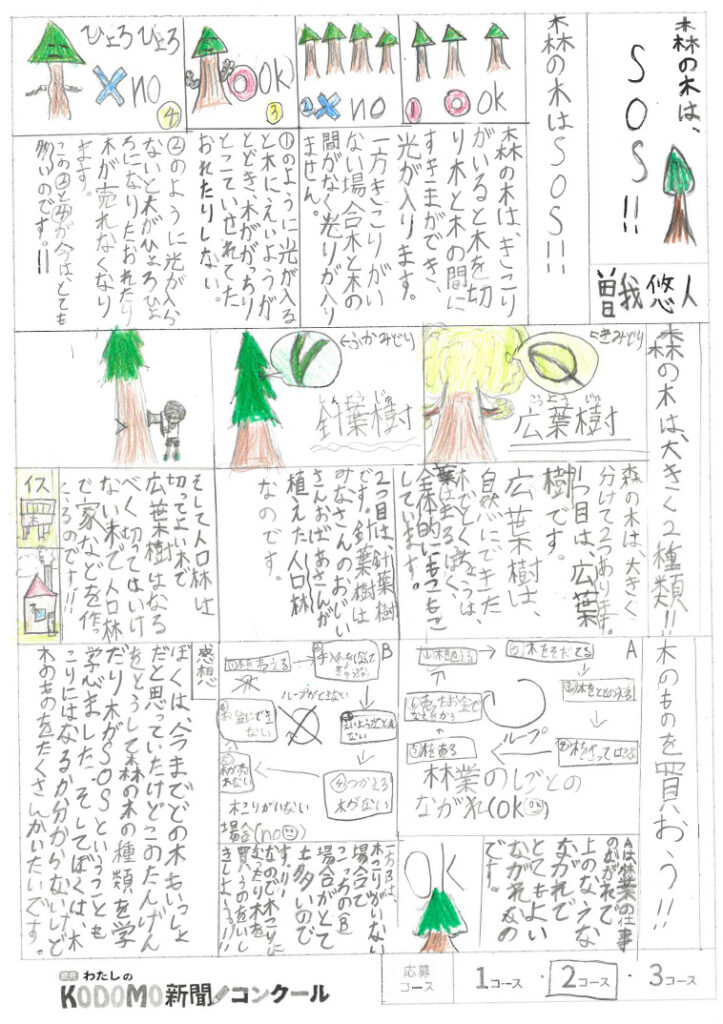 森の木は、
SOS!!
曽我悠人
森の木はSOS!!
① ◎ ok
② × no
③ ◎ ok)
ひょろひょろ
× no
④
森の木は、きこり
がいると木を切
り木と木の間に
すきまができ、
光が入ります。
一方きこりがい
ない場合木と木の
間がなく光りが入り
ません。
①のように光が入る
と木にえいようが
とどき、木ががっちり
とこていせれてた
おれたりしない。
②のように光が入ら
ないと木がひょろひょ
ろになりたおれたり
木が売れなくなり
ます。
この②と④が今は、とても
多いのです。!!
森の木は、大きく2種類!!
きみどり
こうようじゅ
広葉樹
ふかみどり
しんようじゅ
針葉樹
森の木は、大きく、
分けて2つあります。
1つ目は、広葉
樹です。
広葉樹は、
自然にできた
木でとくちょうは、
葉はまるぽく、
全体的にもこもこ
しています。
2つ目は、針葉樹
です。針葉樹は
みなさんのおじい
さんおばあさんが
植えた人口林
なのです。
そして人口林は
切ってよい木で
広葉樹はなる
べく切ってはいけ
ない木で人口林
で家などを作っ
てるのです!!!
イス
木のものを買おう!!
A
①木をそだてる
ループ
⑤木を売る
林業のしごとの
ながれ(ok)
B
ループができない
お金にできない
④つかえる
木がない
木が売れない
木こりがいない
場合(no)
Aは、林業の仕事
のながれで
上のなくえな
ながれで
とてもよい
ながれなの
です。
OK
一方Bは、
木こりがいない
場合で
こっちの(B)
場合がとて
も多いので
す。
感想
ぼくは、今までどの木もいっしょ
だと思っていたけどこのたんけん
をとうして森の木の種類を学
だり木がSOSということも
学びました。そしてぼくは、木
こりにはなるか分からないけど
木のものをたくさんかいたいです。
読売 わたしの
KODOMO新聞コンクール
応募
コース
1コース・2コース・3コース